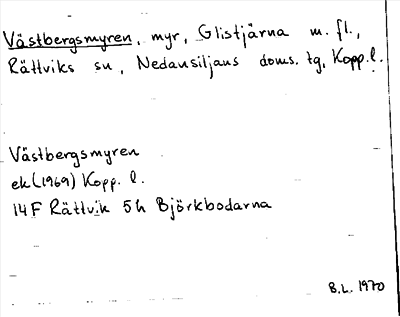 Västbergsmyren, myr, Glistjärna m. fl.,
Rättviks sn, Nedansiljans doms. tg, Kopp. l.
Västbergsmyren
ek (1969) Kopp. l.
14 F Rättvik 5h Björkbodarna
B.L. 1970